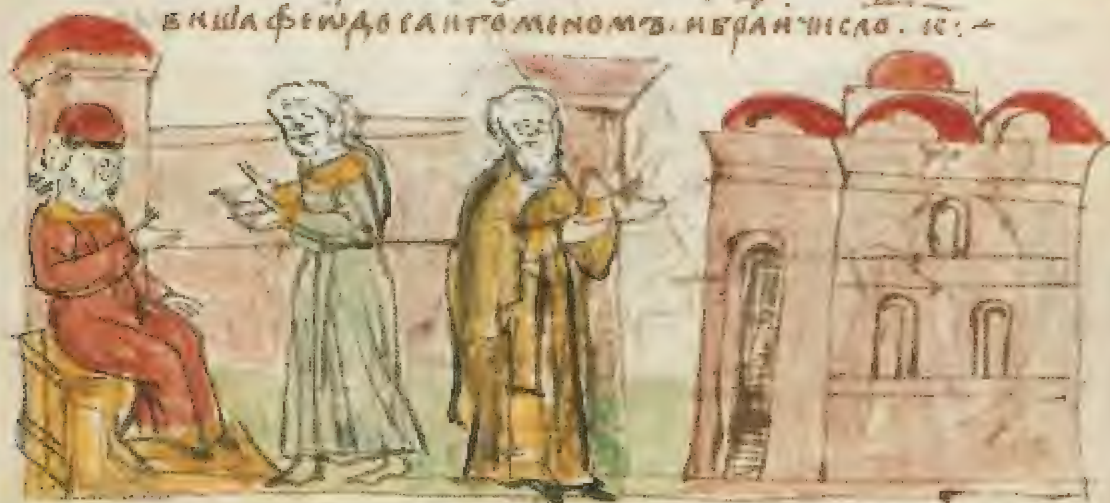 виша феѡдосаигоменомъ. ибра҃и число. к:~